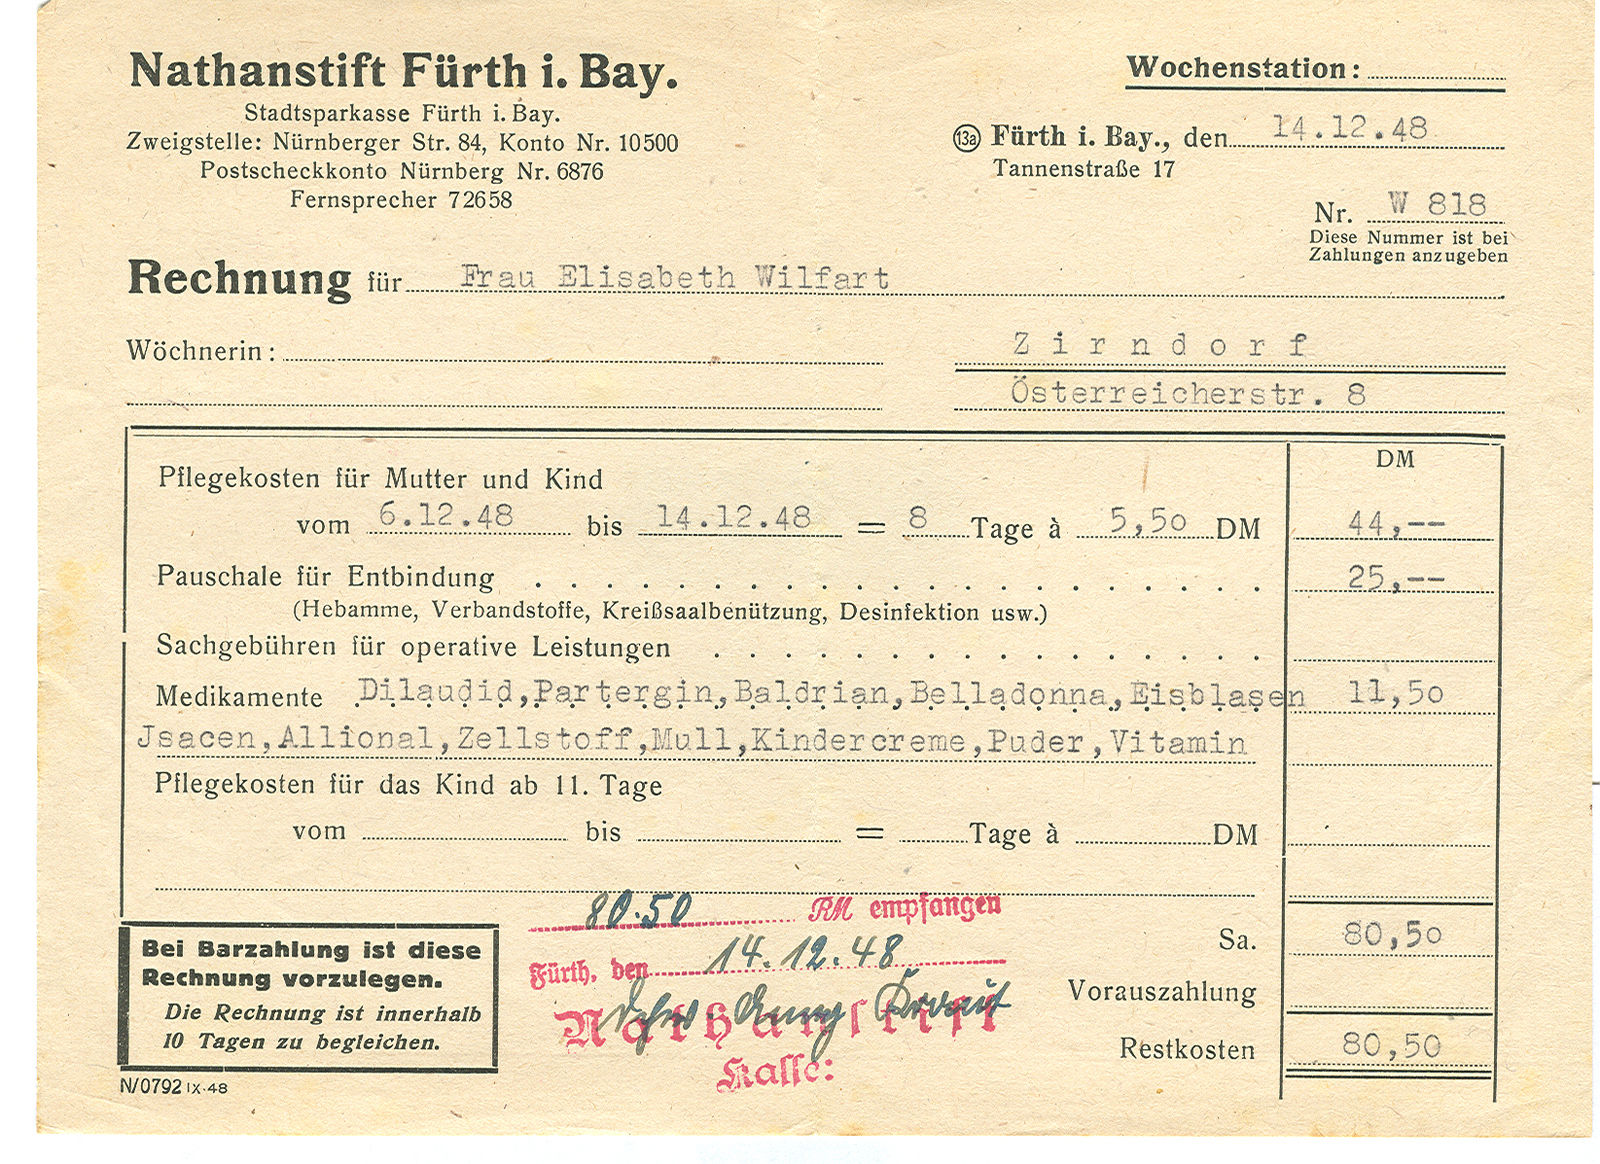 Nathanstift Fürth i. Bay.
Stadtsparkasse Fürth i. Bay.
Zweigstelle: Nürnberger Str. 84, Konto Nr. 10500
Postscheckkonto Nürnberg Nr. 6876
Fernsprecher 72658
Wochenstation:
13a Fürth i. Bay., den 14.12.48
Tannenstraße 17
Nr. W 818
Diese Nummer ist bei
Zahlungen anzugeben
Rechnung für Frau Elisabeth Wilfart
Wöchnerin:
Zirndorf
Österreicherstr. 8
DM
Pflegekosten für Mutter und Kind
vom 6.12.48 bis 14.12.48 = 8 Tage à 5,50 DM 44,--
Pauschale für Entbindung 25,--
(Hebamme, Verbandstoffe, Kreißsaalbenützung, Desinfektion usw.)
Sachgebühren für operative Leistungen
Medikamente Dilaudid,Partergin,Baldrian,Belladonna,Eisblasen 11,50
Jsacen,Allional,Zellstoff,Mull,Kindercreme,Puder,Vitamin
Pflegekosten für das Kind ab 11. Tage
vom bis = Tage à DM
80.50 RM empfangen
Fürth, den 14.12.48
Nathanstift
Kasse:
Sa. 80,50
Vorauszahlung
Restkosten 80,50
Bei Barzahlung ist diese
Rechnung vorzulegen.
Die Rechnung ist innerhalb
10 Tagen zu begleichen.
N/0792 IX-48